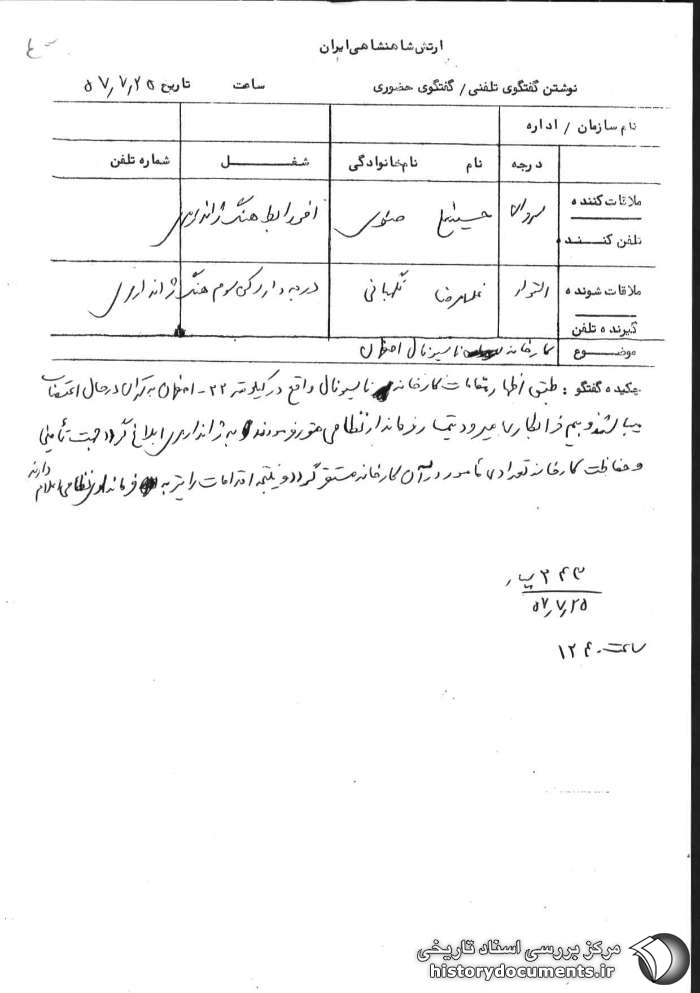 ارتش شاهنشاهی ایران
نوشتن گفتگوی تلفنی / گفتگوی حضوری ساعت تاریخ ۵۷/۷/۲۵
نام سازمان / اداره
درجه نام نام خانوادگی شغل شماره تلفن
ملاقات کننده
تلفن کننده
سروان صفوی افسر رابط هنگ ژاندارمری
ملاقات شونده
گیرنده تلفن
استوار غلامرضا نگهبانی درجه دار رکن سوم هنگ ژاندارمری
موضوع کارخانه ناسیونال اصفهان
چکیده گفتگو : طبق اظهار مقامات کارخانه ناسیونال واقع در کیلومتر ۲۲ - اصفهان به تهران در حال اعتصاب
میباشند و بیم خرابکاری میرود تیمسار فرماندار نظامی فرمودند به ژاندارمری ابلاغ گردد جهت تأمین
و حفاظت کارخانه تعدادی مأمور در آن کارخانه مستقر گردد و نتیجه اقدامات را نیز به فرمانداری نظامی اعلام
دارند
۳۴۳
۵۷/۷/۲۵
ساعت ۱۲۴۰
مرکز بررسی اسناد تاریخی
historydocuments.ir